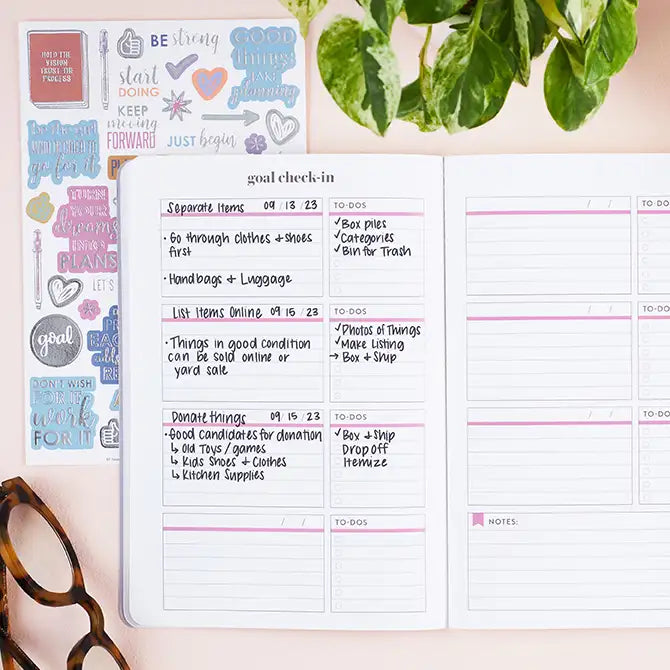 HOLD THE
VISION
TRUST THE
PROCESS
BE strong
start
DOING
KEEP
moving
FORWARD
GOOD
things
TAKE
planning
JUST begin
go for it
TURN
YOUR
dreams
INTO
PLANS
LET'S
goal
DON'T WISH
FOR IT
work
FOR IT
goal check-in
Separate Items 09 / 13 / 23
• Go through clothes + shoes
first
• Handbags + Luggage
TO-DOS
✓Box piles
✓Categories
✓Bin for Trash
List Items Online 09 / 15 / 23
• Things in good condition
can be sold online or
yard sale
TO-DOS
✓Photos of Things
✓Make Listing
→ Box + Ship
Donate things 09 / 15 / 23
• Good candidates for donation
↳ Old Toys / games
↳ Kids Shoes + Clothes
↳ Kitchen Supplies
TO-DOS
✓Box + Ship
Drop off
Itemize
/ /
TO-DOS
/ /
TO-DO
/ /
TO-DO
/ /
TO-DO
NOTES: